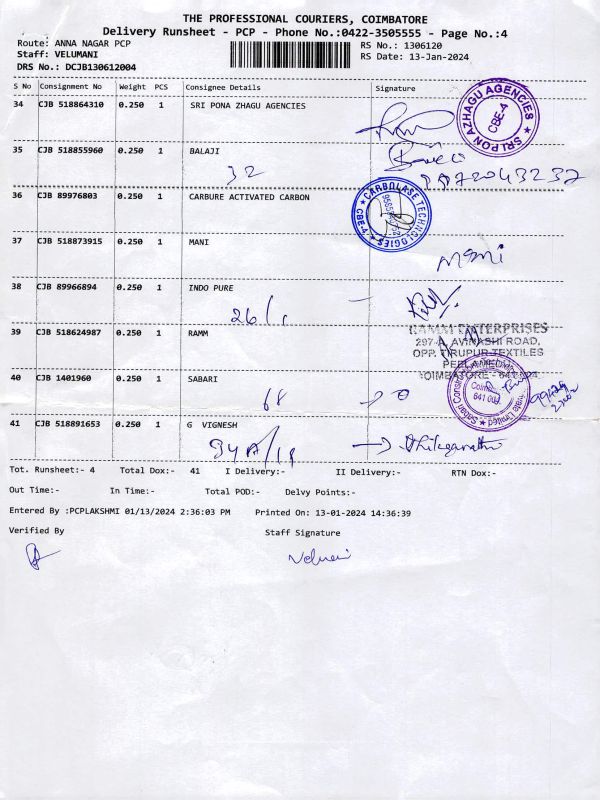 THE PROFESSIONAL COURIERS, COIMBATORE
Delivery Runsheet - PCP - Phone No.:0422-3505555 - Page No.:4
Route: ANNA NAGAR PCP
RS No.: 1306120
Staff: VELUMANI
RS Date: 13-Jan-2024
DRS No.: DCJB130612004
S No Consignment No Weight PCS Consignee Details Signature
34 CJB 518864310 0.250 1 SRI PONA ZHAGU AGENCIES
SRI PON AZHAGU AGENCIES
CBE-4
35 CJB 518855960 0.250 1 BALAJI
32
36 CJB 89976803 0.250 1 CARBURE ACTIVATED CARBON
CARBOLASE TECHNOLOGIES
CBE-4
37 CJB 518873915 0.250 1 MANI
Mani
38 CJB 89966894 0.250 1 INDO PURE
26/1
39 CJB 518624987 0.250 1 RAMM
RAMM ENTERPRISES
297-A, AVINASHI ROAD,
OPP. TIRUPUR TEXTILES
PEELAMEDU
COIMBATORE - 641 004.
40 CJB 1401960 0.250 1 SABARI
68
41 CJB 518891653 0.250 1 G VIGNESH
94A/19
Tot. Runsheet:- 4 Total Dox:- 41 I Delivery:- II Delivery:- RTN Dox:-
Out Time:- In Time:- Total POD:- Delvy Points:-
Entered By :PCPLAKSHMI 01/13/2024 2:36:03 PM Printed On: 13-01-2024 14:36:39
Verified By Staff Signature